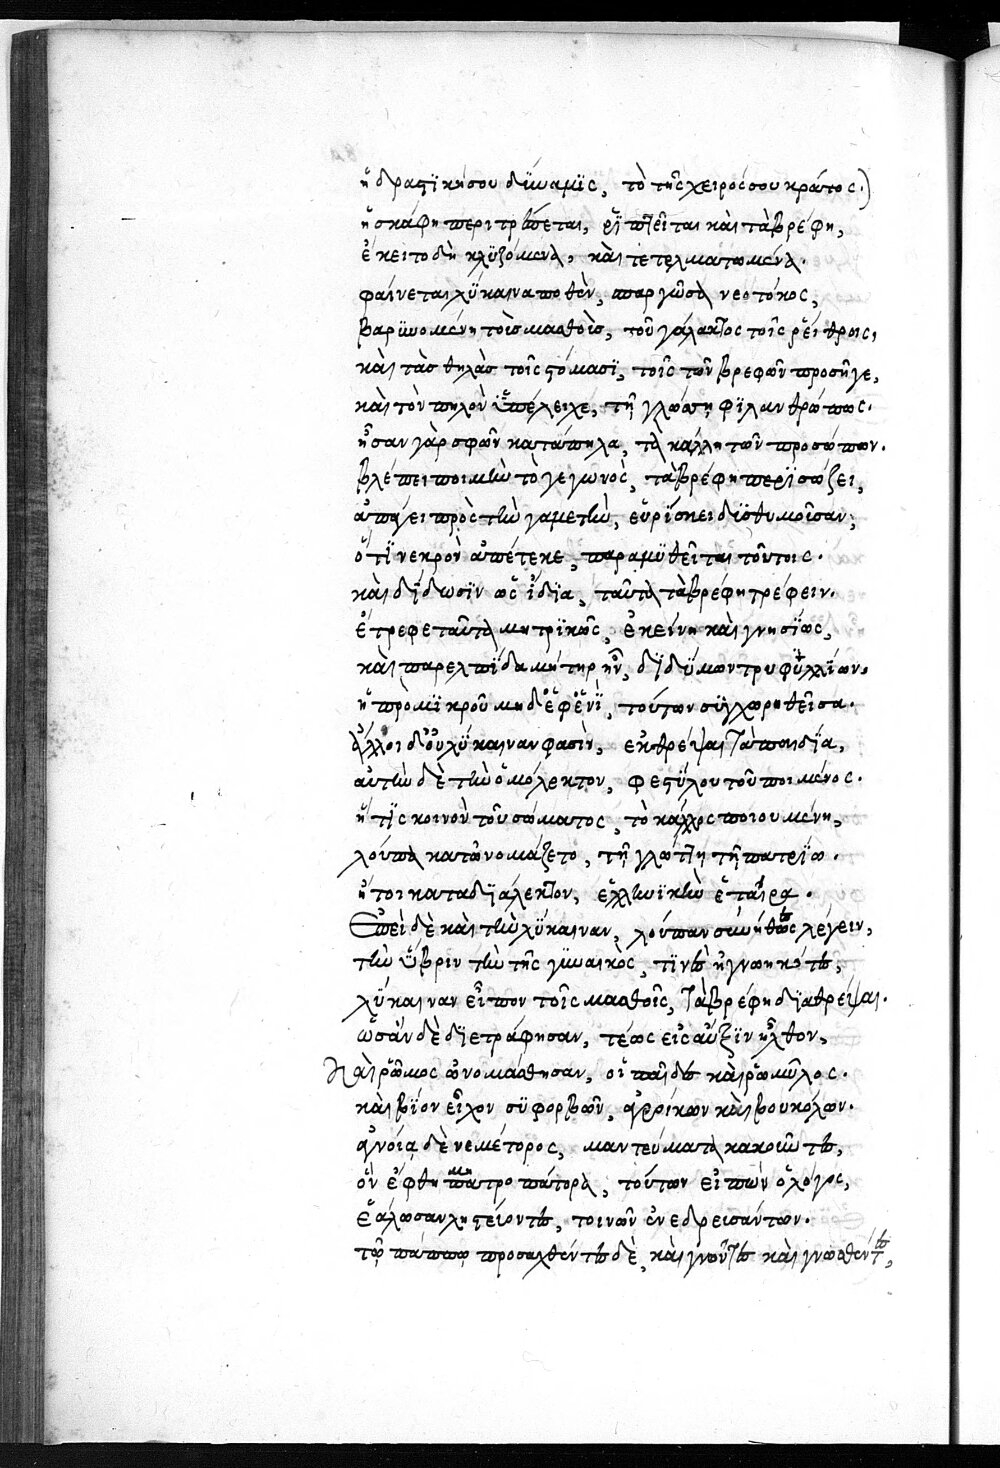 ἡ δραστϊκή σου δύναμϊς, τὸ τῆς χειρός σου κράτος.)
ἡ σκάφη περιτρέπεται, ῥϊπτεῖται καὶ τὰ βρέφη,
ἔκειτο δὴ κλυζόμενα, καὶ τετελματωμένα.
φαίνεται λύκαινα ποθὲν, παργῶσα νεοτόκος,
βαρϋνομένη τοῖς μασθοῖς, τοῦ γάλακτος τοῖς ῥείθροις,
καὶ τὰς θηλὰς τοῖς στόμασϊ, τοῖς τῶν βρεφῶν προσῆγε,
καὶ τὸν πηλὸν ὑπέλειχε, τῇ γλώσσῃ φϊλανθρώπως.
ἦσαν γὰρ σφῶν κατάπηλα, τὰ κάλλη τῶν προσώπων.
βλέπει ποιμὴν τὸ γεγωνὸς, τὰ βρέφη περϊσώζει,
ἀπῄει πρὸς τὴν γαμετὴν, εὑρίσκει δϋσθυμοῦσαν,
ὅτϊ νεκρὸν ἀπέτεκε, παραμϋθεῖται τούτοις.
καὶ δίδωσϊν ὡς ἴδια, ταῦτα τὰ βρέφη τρέφειν.
ἔτρεφε ταῦτα μητρϊκῶς, ἐκείνη καὶ γνησΐως,
καὶ παρελπίδα μήτηρ ἦν, δϊδύμων τρυφϋλλίων,
ἡ πρὸ μϊκροῦ μηδ' ἐφ' ἑνὶ, τούτων συγχωρηθεῖσα.
ἄλλοι δ' οὐ λύκαιναν φασὶν, ἐκθρέψαι τὰ παιδία,
αὐτὴν δὲ τὴν ὁμόλεκτον, φεστύλου τοῦ ποιμένος.
ἥτις κοινὸν τοῦ σώματος, τὸ κάλλος ποιουμένη,
λούπα κατωνομάζετο, τῇ γλώττῃ τῇ πατρίω.
ἤτοι καταδϊάλεκτον, ἑλληνϊκὴν ἑταίρα.
Ἐπεὶ δὲ καὶ τὴν λύκαιναν, λούπαν συνήθως λέγειν,
τὴν ὕβριν τὴν τῆς γυναικὸς, τϊνὲς ἠγνοηκότες,
λύκαιναν εἶπον τοῖς μασθοῖς, τὰ βρέφη διαθρέψαι.
ὡσὰν δὲ δϊετράφησαν, τέως εἰς αὔξϊν ἦλθον,
Καὶ ῥῶμος ὠνομάσθησαν, οἱ παῖδες καὶ ῥωμῦλος.
καὶ βϊὸν εἶχον συφορβῶν, ἀγροίκων καὶ βουκόλων.
ἀνοίᾳ δὲ νεμέτορος, μαντεύματα κακοῦντες,
ὃν ἔφθη μητροπάτορα, τούτων εἰπὼν ὁ λόγος,
ἑάλωσαν λῃστεύοντες, τοινῶν ἐνεδρεισάντων.
τῷ πάππῳ προσαχθέντες δὲ, καὶ γνόντες καὶ γνωσθέντες,